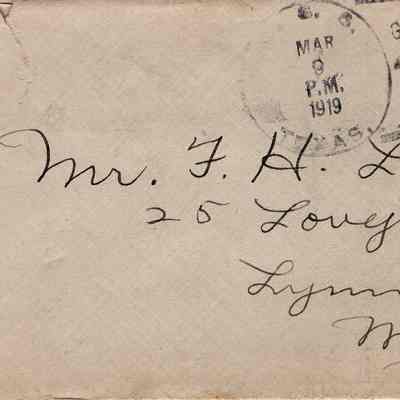 MAR
9
P.M.
1919
TEXAS
Mr. F. H. L
25 Lovej
Lynn
M